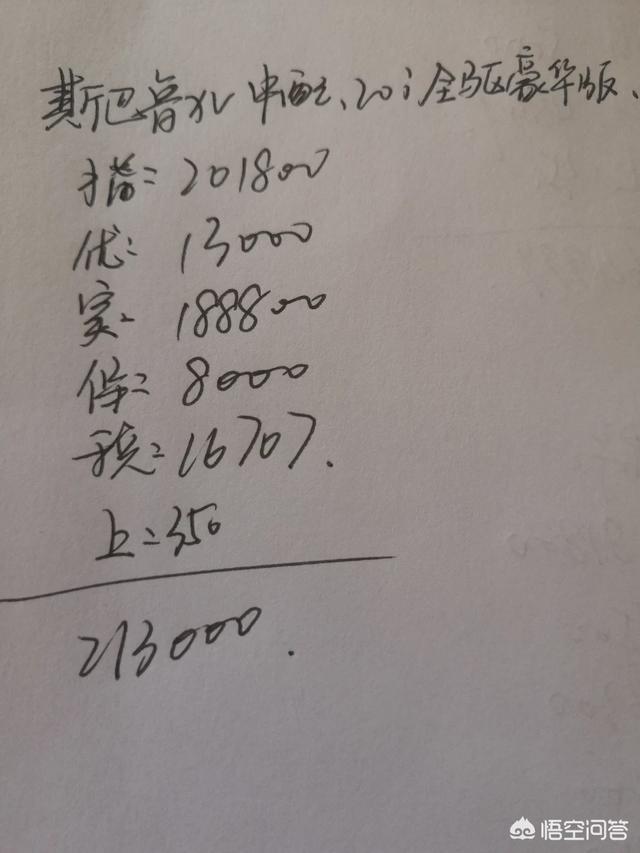 斯巴鲁XV 中配、20i全驱豪华版、
指: 201800
优: 13000
实: 188800
保: 8000
税: 16707.
上: 350
213000.
悟空问答